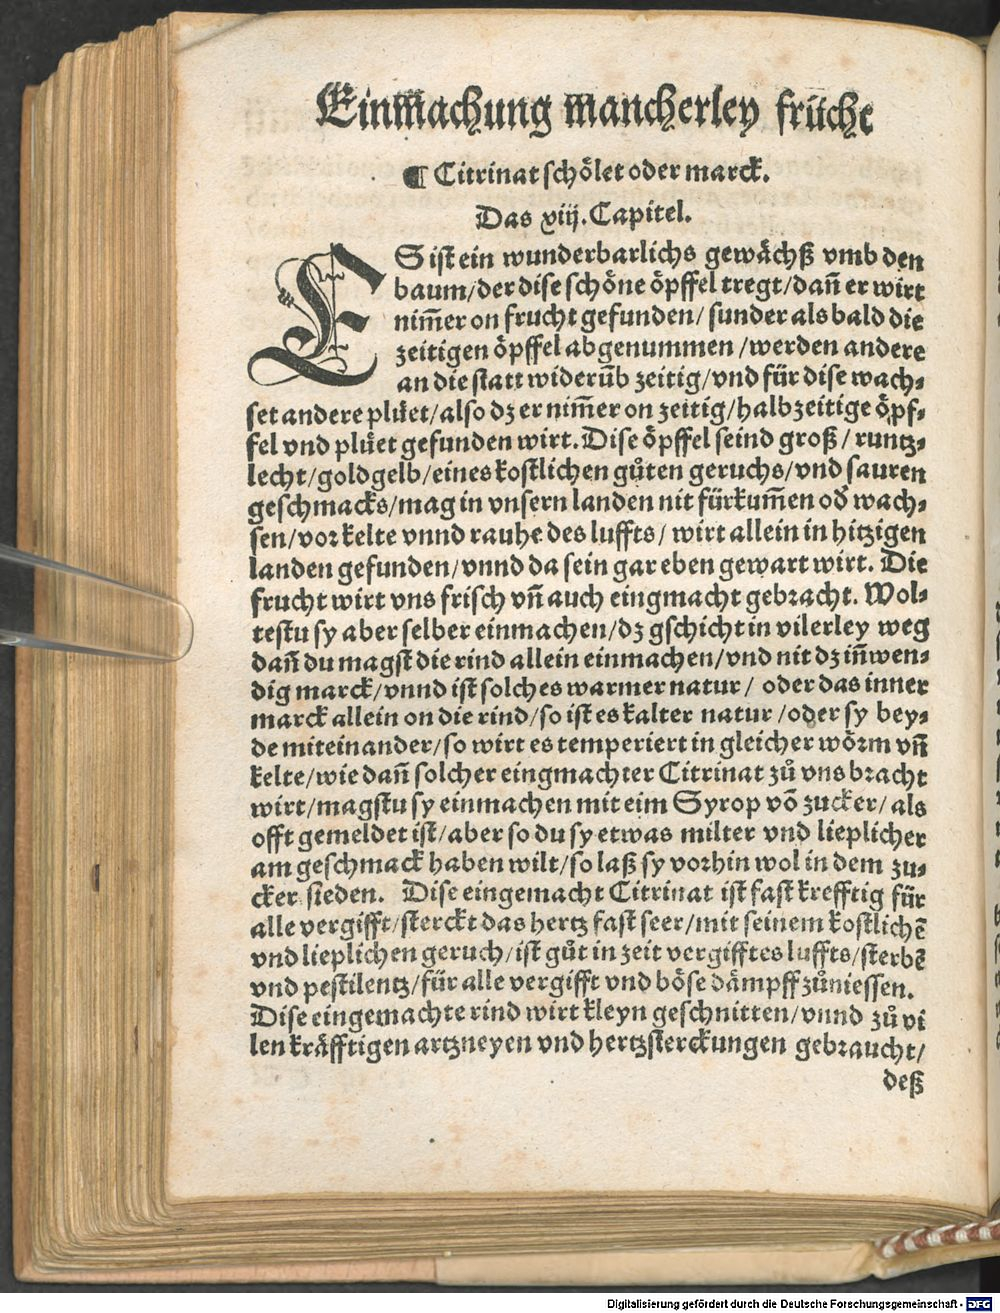 Einmachung mancherley früche
¶ Citrinat schölet oder marck.
Das xiij. Capitel.
ES ist ein wunderbarlichs gewächß vmb den
baum/der dise schöne öpffel tregt/dañ er wirt
nim̃er on frucht gefunden/ sunder als bald die
zeitigen öpffel abgenummen /werden andere
an die statt widerũb zeitig/vnd für dise wach⸗
set andere plůet/also dz er nim̃er on zeitig/halbzeitige öpf⸗
fel vnd plůet gefunden wirt. Dise öpffel seind groß/ runtz⸗
lecht/goldgelb/eines kostlichen gůten geruchs/vnd sauren
geschmacks/mag in vnsern landen nit fürkum̃en od̕ wach⸗
sen/vor kelte vnnd rauhe des luffts/ wirt allein in hitzigen
landen gefunden/vnnd da sein gar eben gewart wirt. Die
frucht wirt vns frisch vñ auch eingmacht gebracht. Wol⸗
testu sy aber selber einmachen/dz gschicht in vilerley weg
dañ du magst die rind allein einmachen/vnd nit dz iñwen⸗
dig marck/vnnd ist solches warmer natur/ oder das inner
marck allein on die rind/so ist es kalter natur /oder sy bey⸗
de miteinander/so wirt es temperiert in gleicher wörm vñ
kelte/wie dañ solcher eingmachter Citrinat zů vns bracht
wirt/magstu sy einmachen mit eim Syrop võ zucker/ als
offt gemeldet ist/aber so du sy etwas milter vnd lieplicher
am geschmack haben wilt/so laß sy vorhin wol in dem zu⸗
cker sieden. Dise eingemacht Citrinat ist fast krefftig für
alle vergifft/sterckt das hertz fast seer/mit seinem kostlichẽ
vnd lieplichen geruch/ist gůt in zeit vergifftes luffts/sterbẽ
vnd pestilentz/für alle vergifft vnd böse dämpff zůniessen.
Dise eingemachte rind wirt kleyn geschnitten/vnnd zů vi
len kräfftigen artzneyen vnd hertzsterckungen gebraucht/
deß
Digitalisierung gefördert durch die Deutsche Forschungsgemeinschaft - DFG